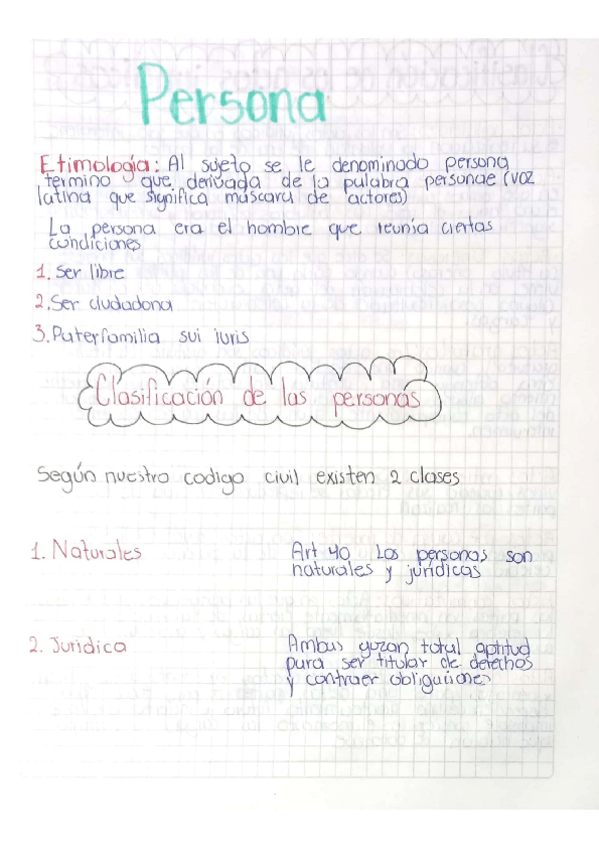 Persona
Etimología: Al sujeto se le denominado persona
termino que derivada de la palabra personae (voz
latina que significa máscara de actores)
La persona era el hombre que reunía ciertas
condiciones
1. Ser libre
2. Ser ciudadona
3. Paterfamilia sui iuris
Clasificación de las personas
Según nuestro codigo civil existen 2 clases
1. Naturales
Art 40 Las personas son
naturales y jurídicas
2. Juridica
Ambas gozan total aptitud
para ser titular de derechos
y contraer obligaciones